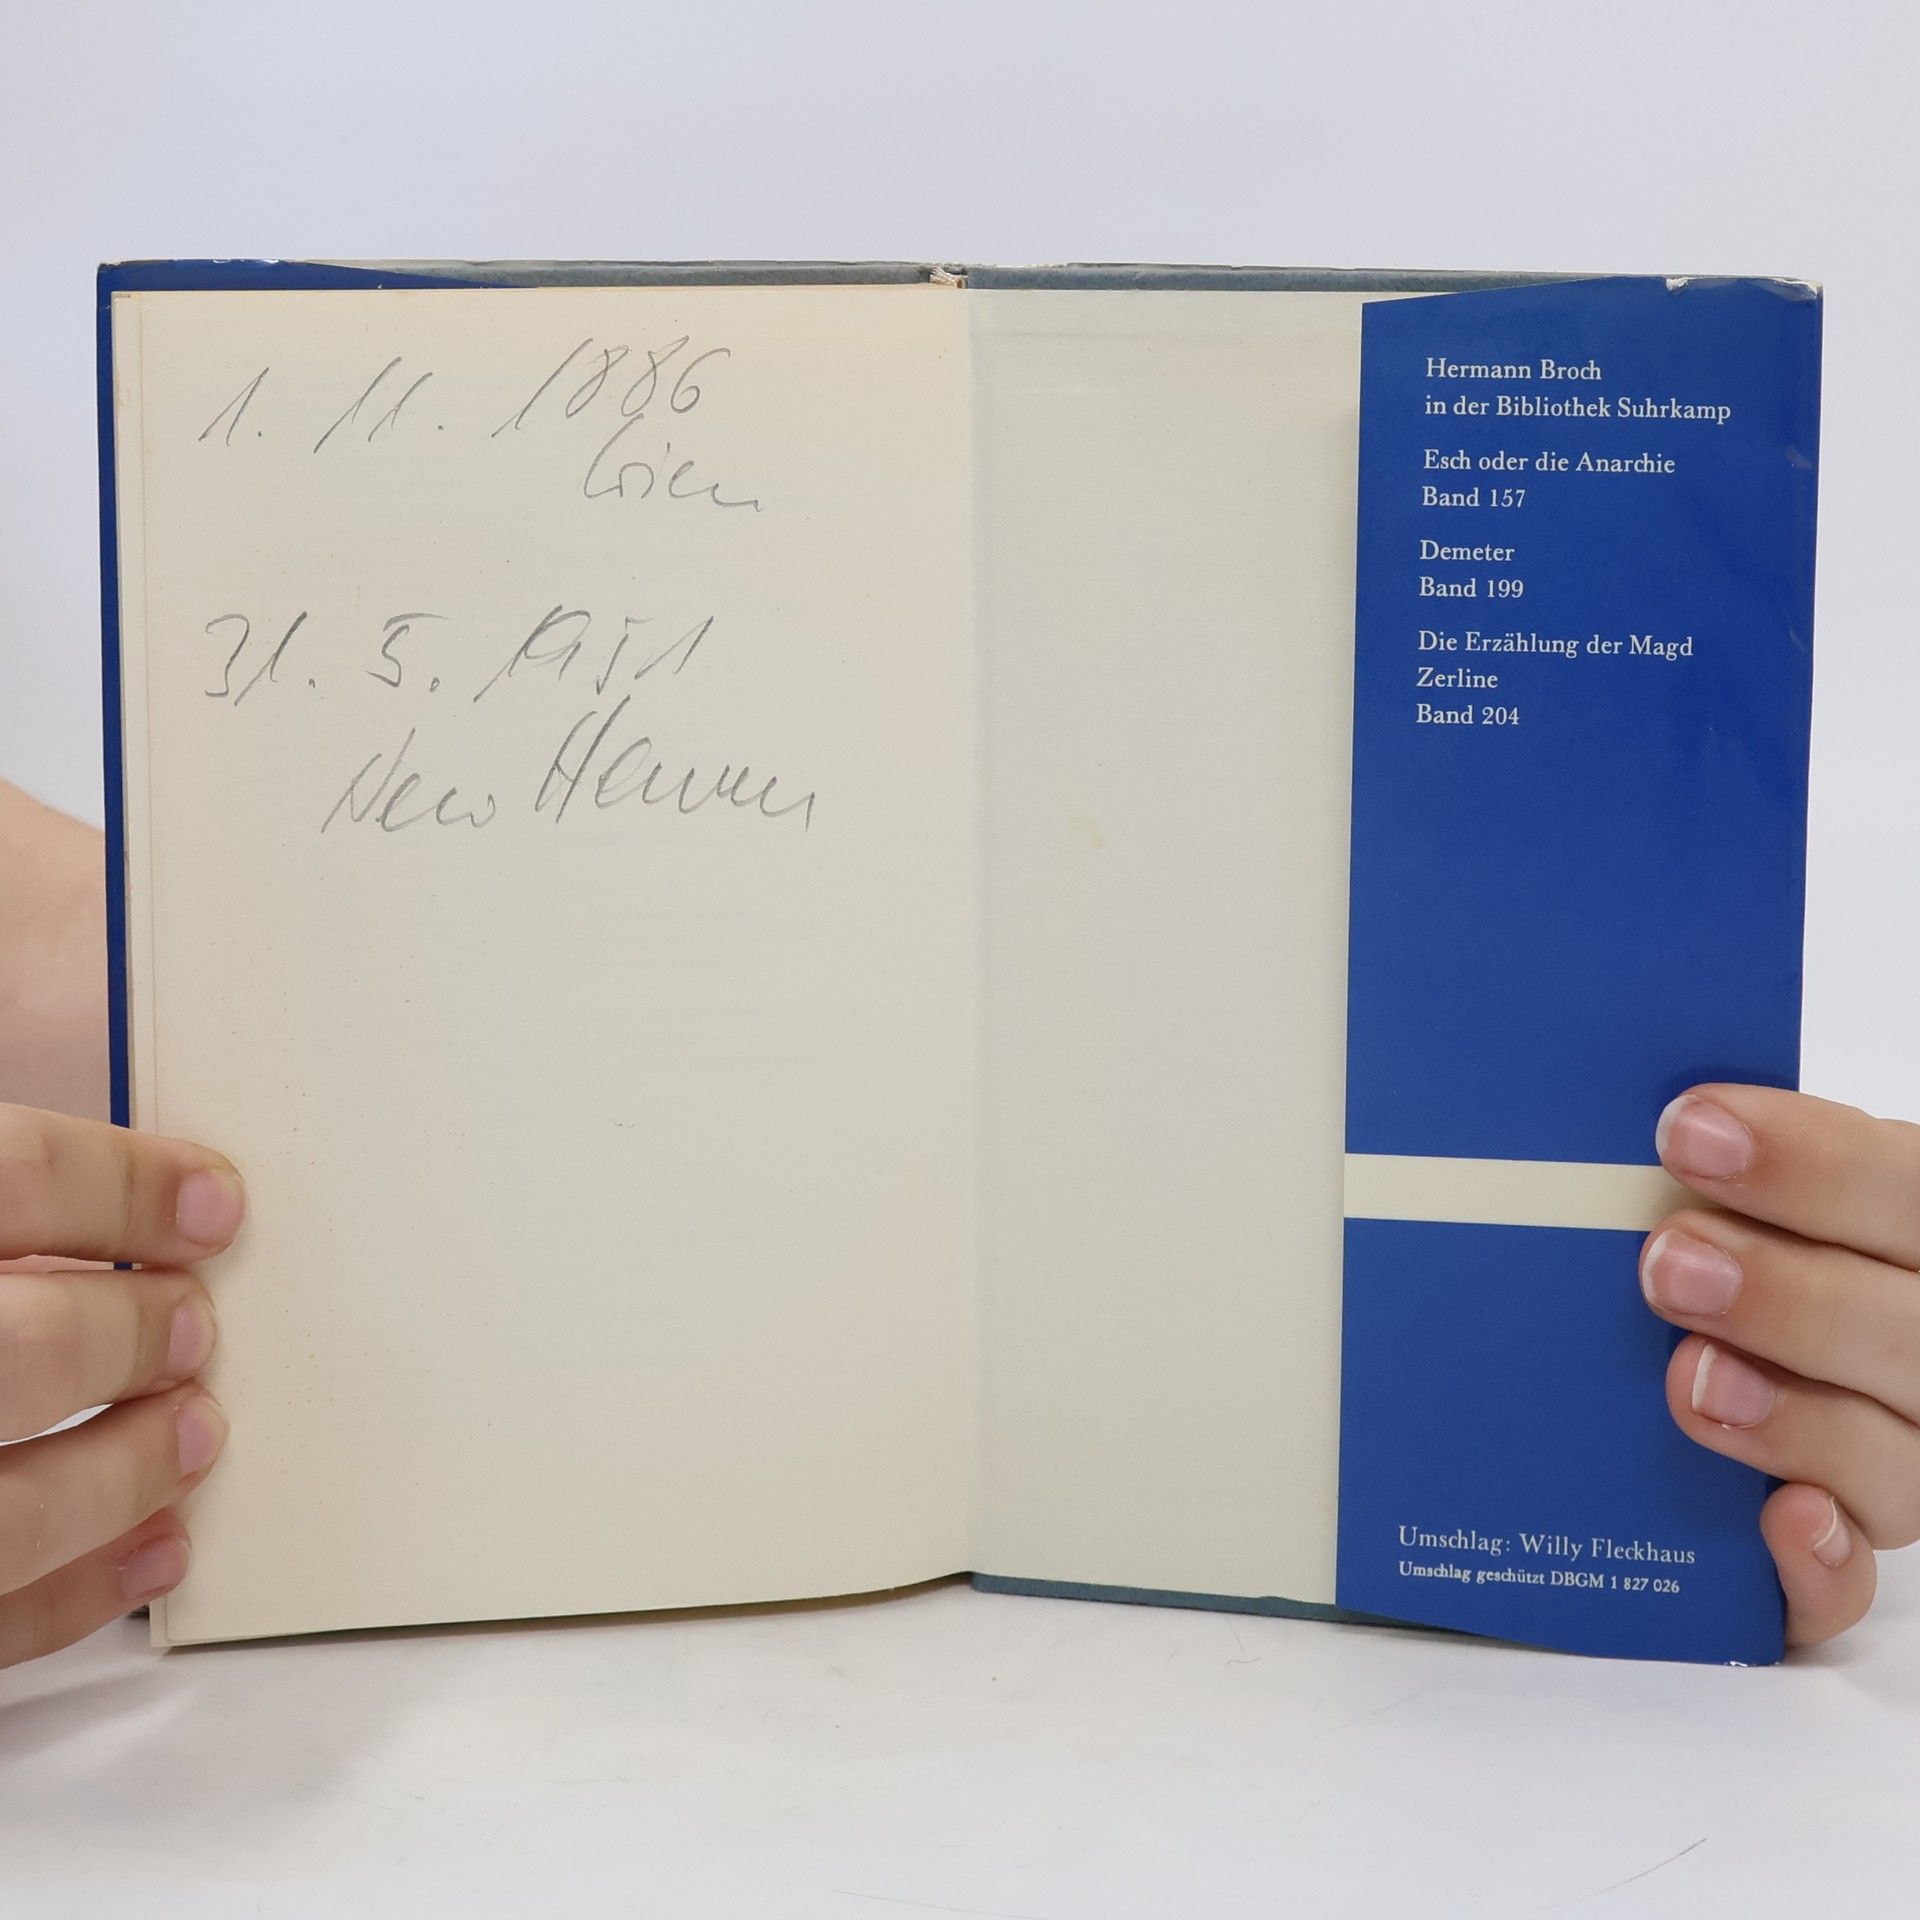 1. 11. 1886
Wien
31. 5. 1951
New Haven
Hermann Broch
in der Bibliothek Suhrkamp
Esch oder die Anarchie
Band 157
Demeter
Band 199
Die Erzählung der Magd
Zerline
Band 204
Umschlag: Willy Fleckhaus
Umschlag geschützt DBGM 1 827 026